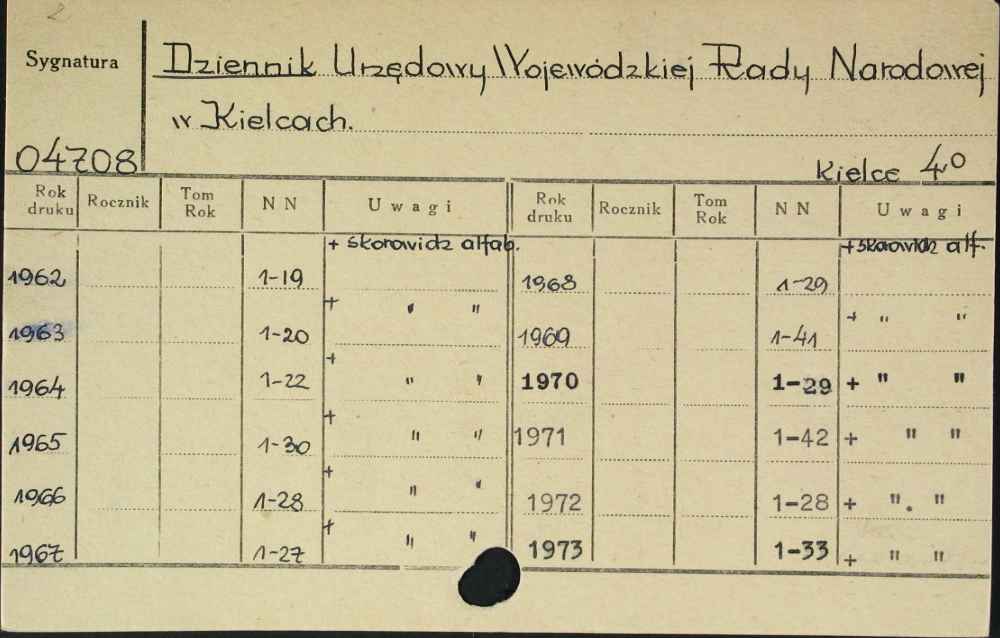 2
Sygnatura
Dziennik Urzędowy Wojewódzkiej Rady Narodowej
w Kielcach.
04708
Kielce 4°
Rok druku Rocznik Tom Rok NN Uwagi Rok druku Rocznik Tom Rok NN Uwagi
1962 1-19 + skorowidz alfab. 1968 1-29 + skorowidz alf.
1963 1-20 + " " 1969 1-41 + " "
1964 1-22 + " " 1970 1-29 + " "
1965 1-30 + " " 1971 1-42 + " "
1966 1-28 + " " 1972 1-28 + ". "
1967 1-27 + " " 1973 1-33 + " "